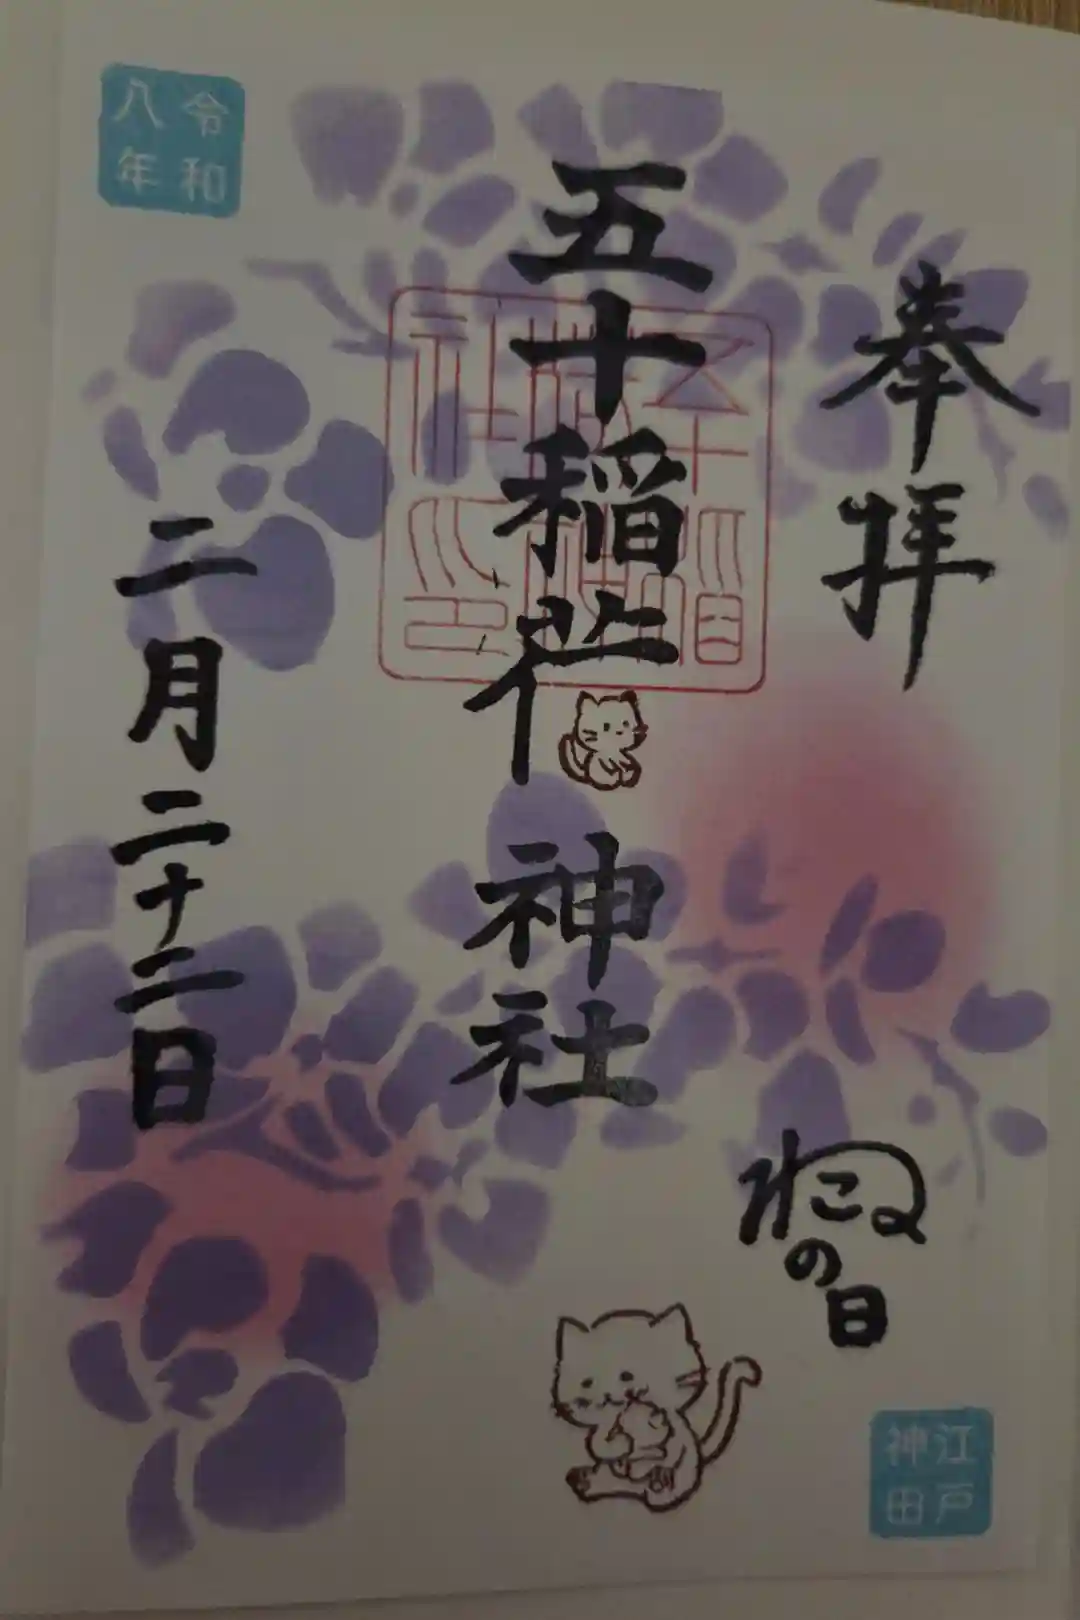 奉拝
ねこの日
江戸
神田
五十稲荷神社
令和
八年
二月二十二日